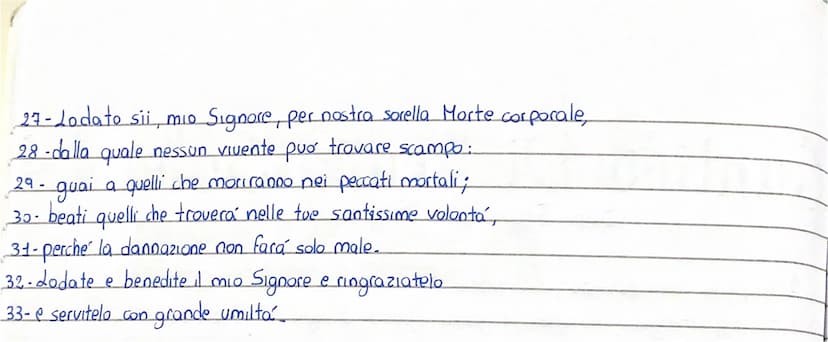 27-Lodato sii, mio Signore, per nostra sorella Morte corporale,
28-dalla quale nessun vivente può trovare scampo:
29- guai a quelli che moriranno nei peccati mortali;
30- beati quelli che troverá nelle tue santissime volontá,
31-perché la dannazione non fará solo male.
32-Lodate e benedite il mio Signore e ringraziatelo
33- e servitelo con grande umiltá.